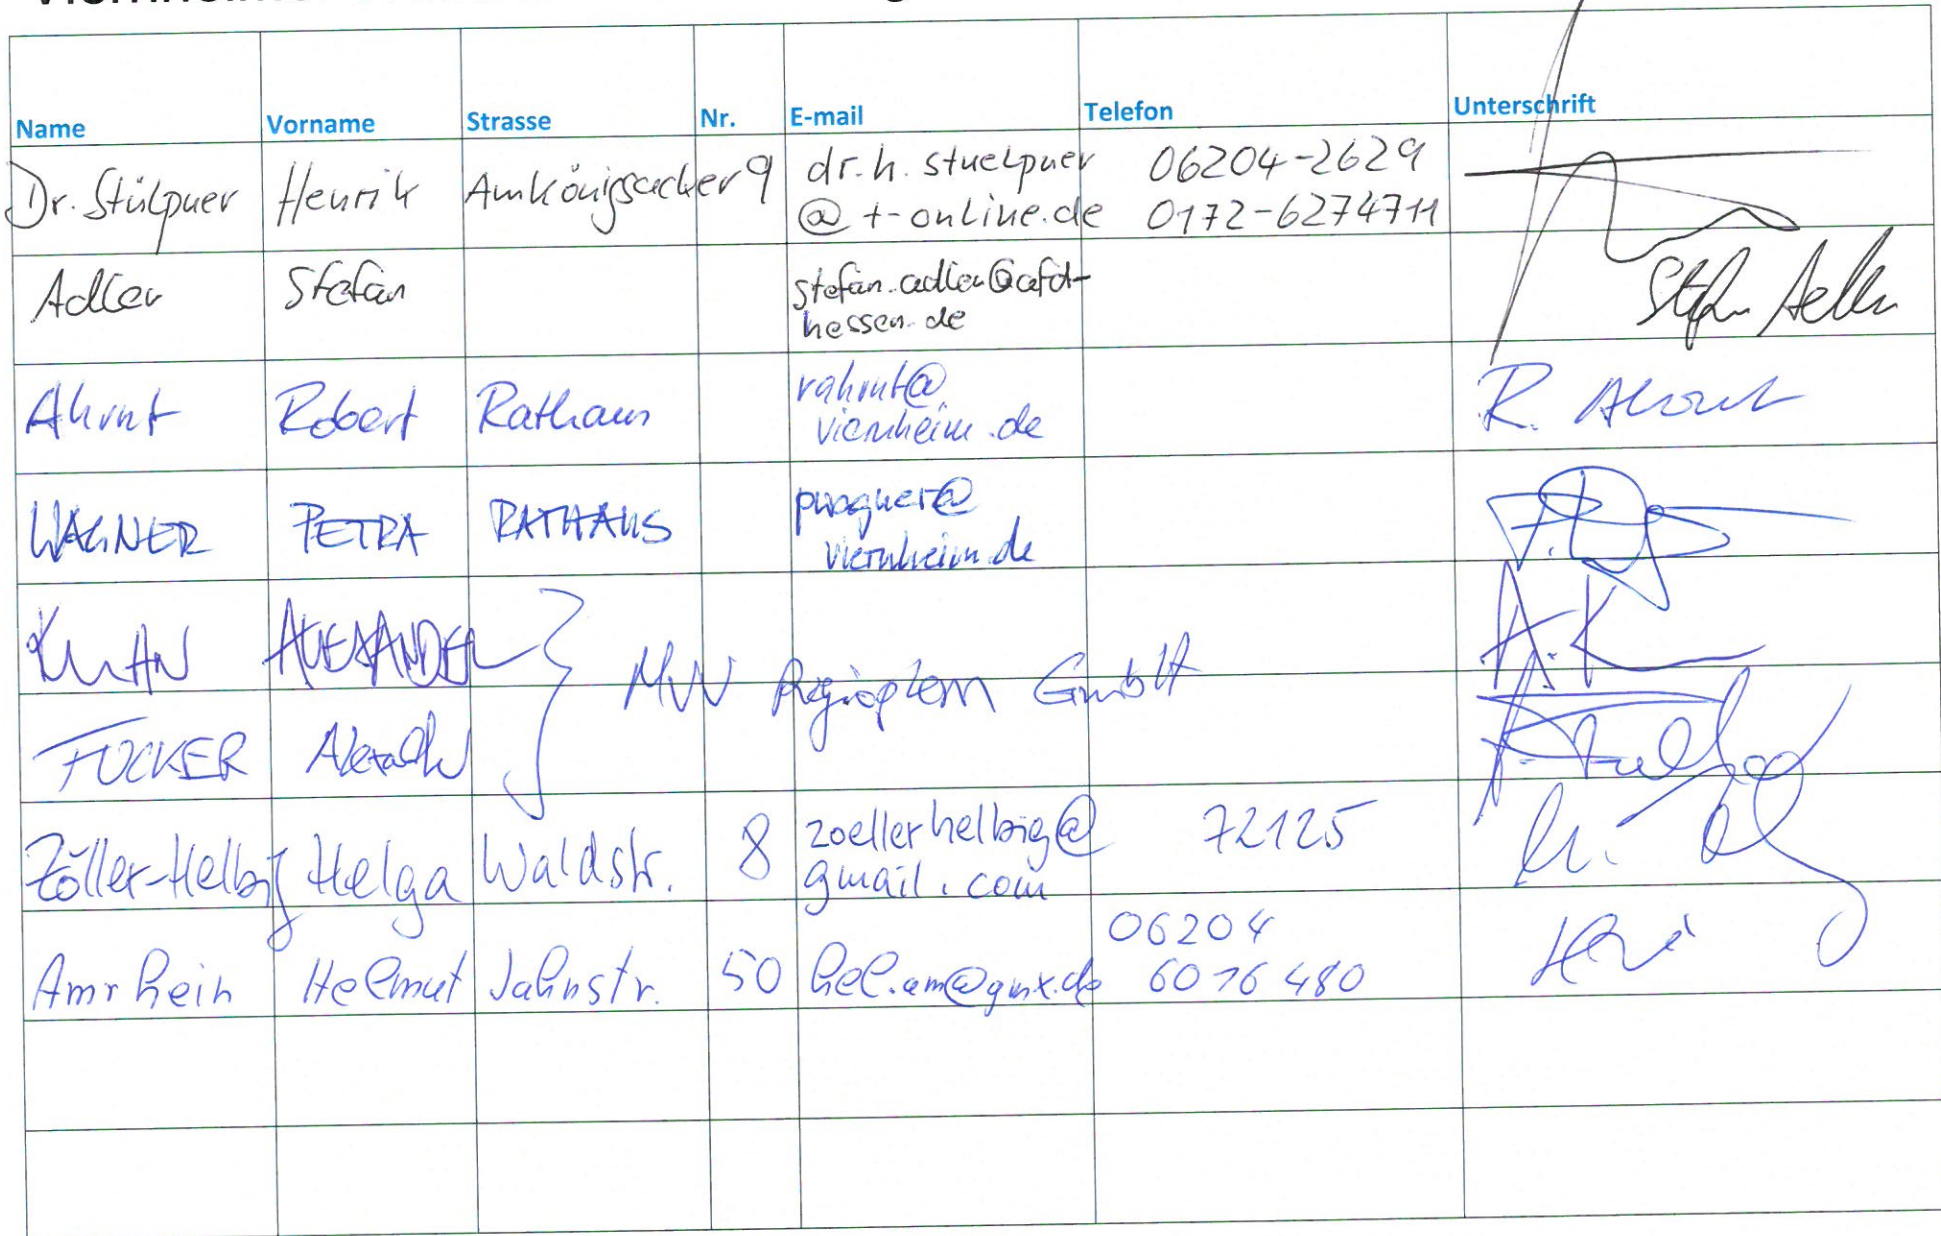 Name Vorname Strasse Nr. E-mail Telefon Unterschrift
Dr. Stülpner Henrik Am Königsacker 9 dr.h.stuelpner 06204-2629
@t-online.de 0172-6274711
Adler Stefan stefan.adler@afd-
hessen.de Stefan Adler
Ahrnt Robert Rathaus rahrnt@
viernheim.de R. Ahrnt
WAGNER PETRA RATHAUS pwagner@
viernheim.de
KUHN ALEXANDER A. K
MVV Regioplan GmbH
FUCKER Alexander
Zöller-Helbig Helga Waldstr. 8 zoellerhelbig@ 72125
gmail.com
Amrhein Helmut Jahnstr. 50 hel.am@gmx.de 06204
6076480